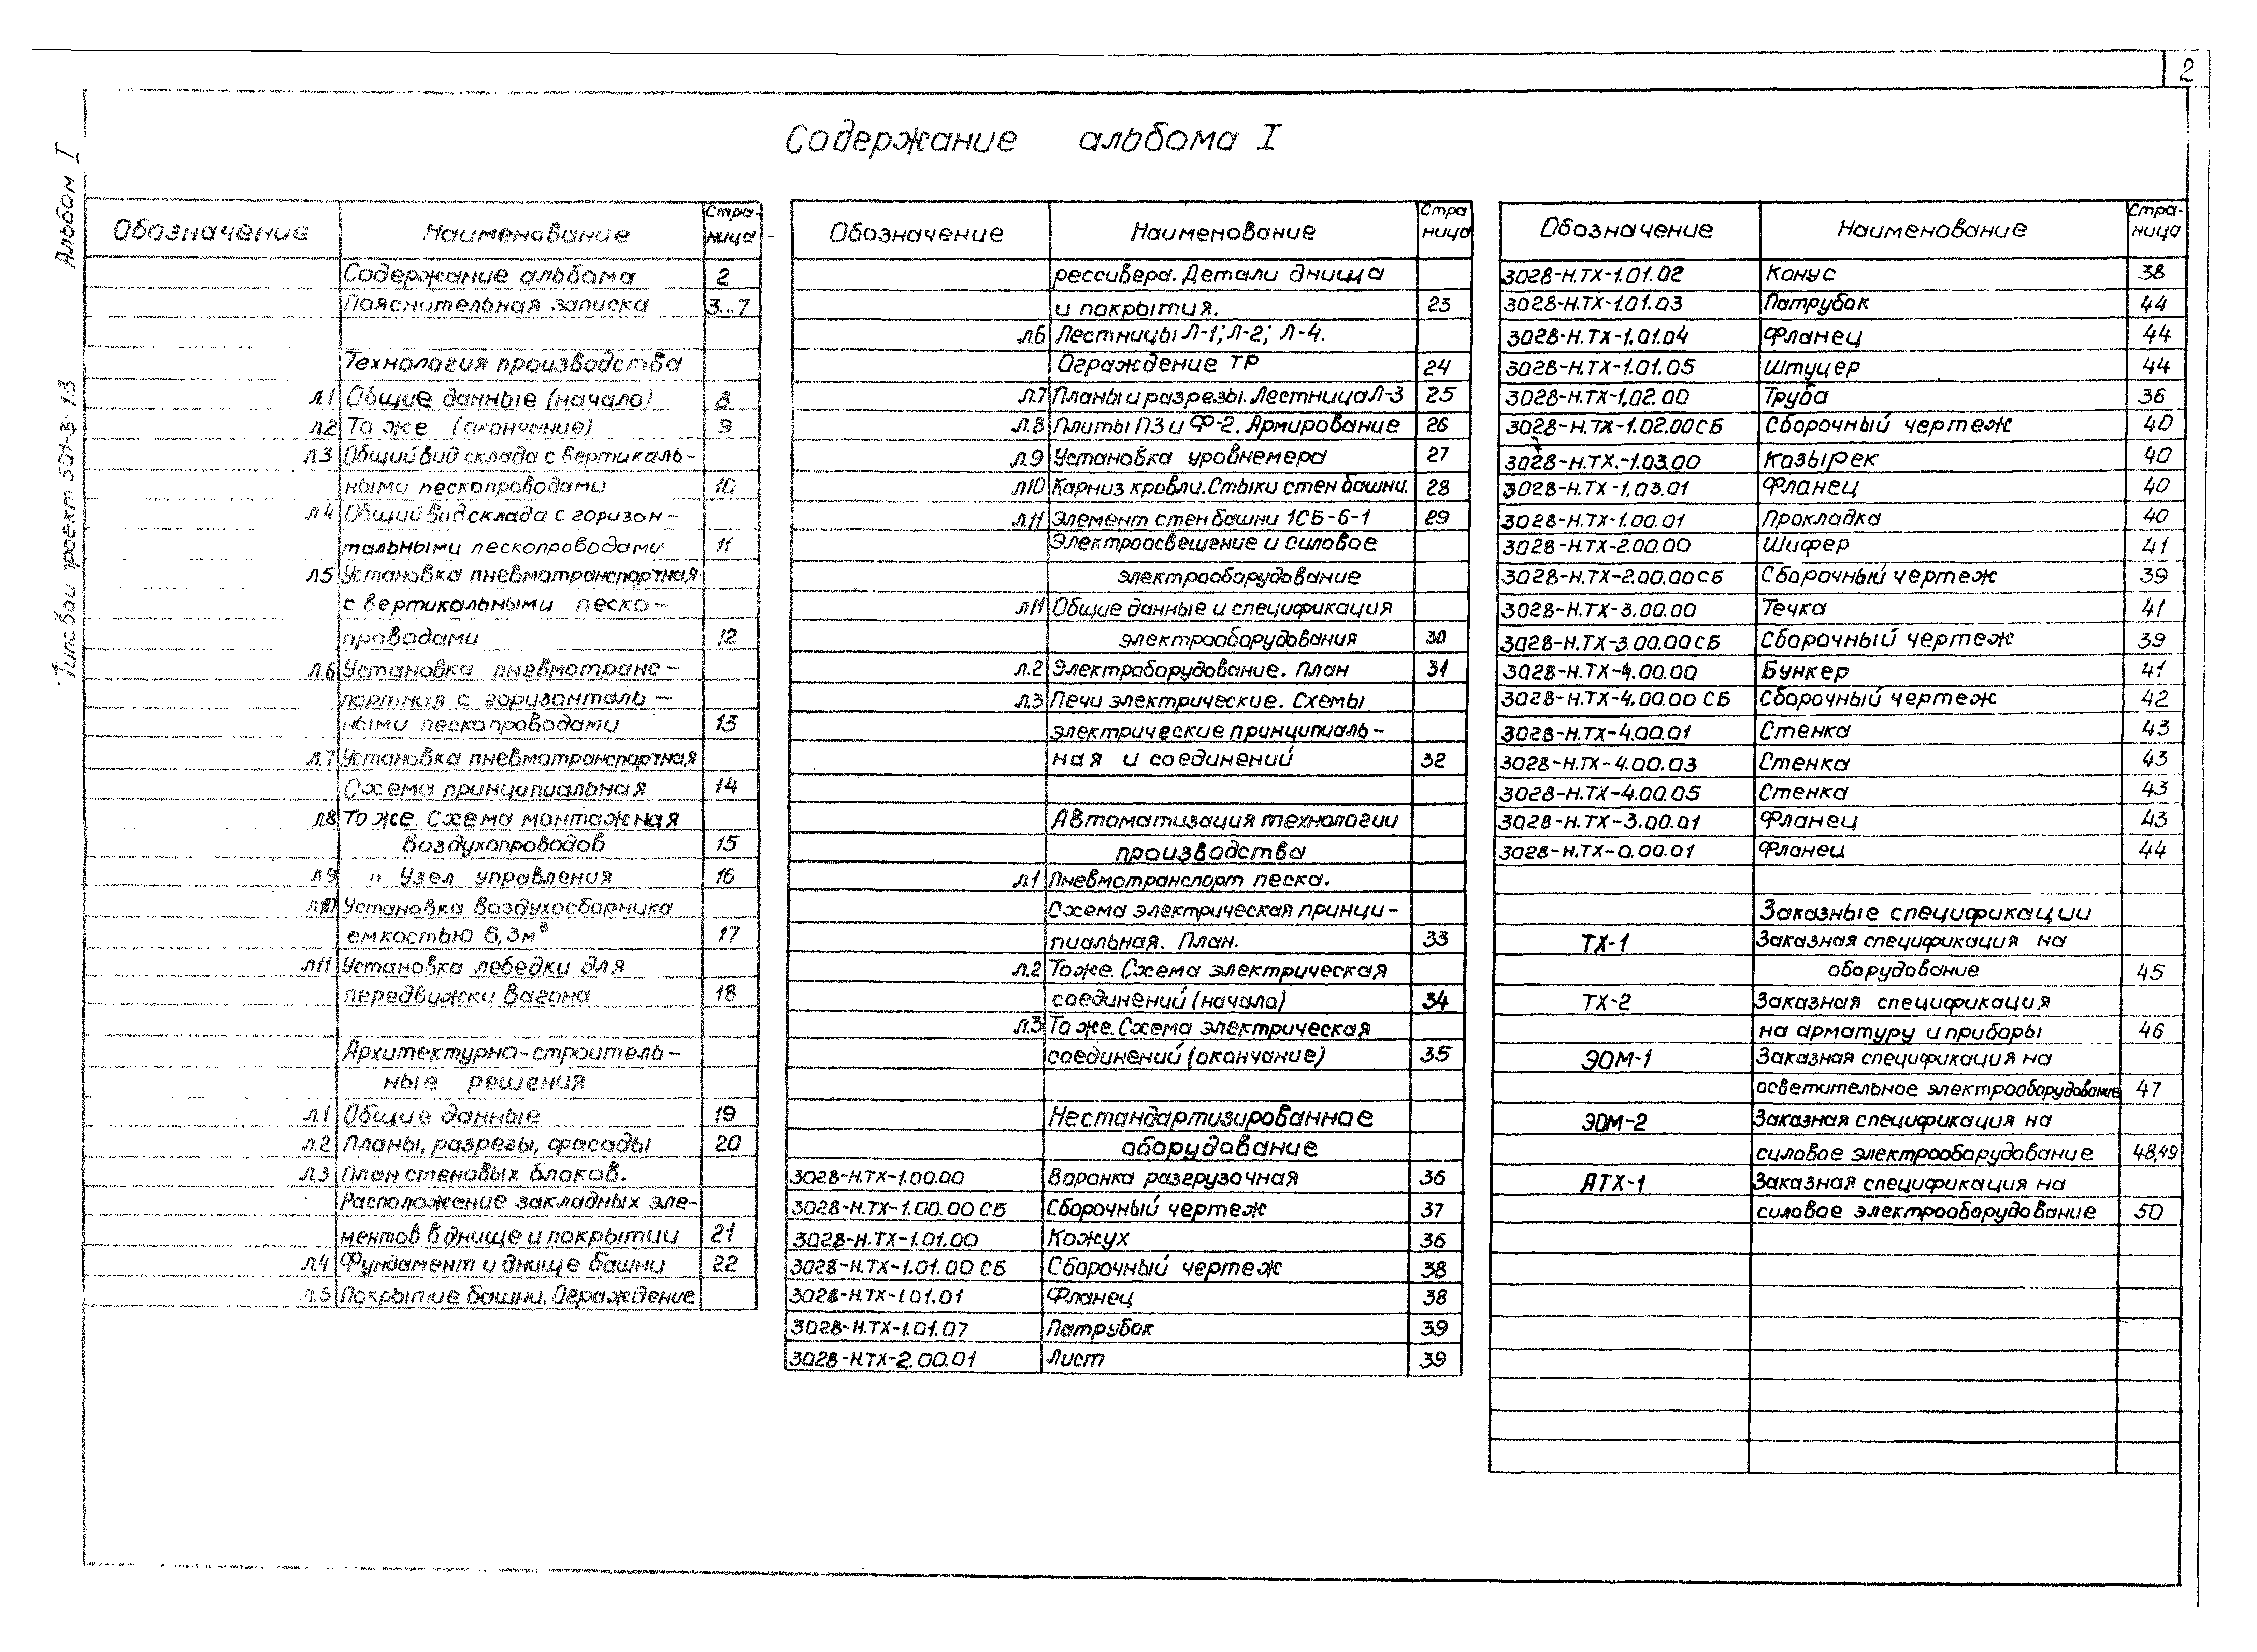 2
Содержание альбома I
Альбом I
Типовой проект 501-3-13
Обозначение Наименование Страница
Содержание альбома 2
Пояснительная записка 3...7
Технология производства
л1 Общие данные (начало) 8
л2 То же (окончание) 9
л3 Общий вид склада с вертикаль-
ными пескопроводами 10
л4 Общий вид склада с горизон-
тальными пескопроводами 11
л5 Установка пневмотранспортная
с вертикальными песко-
проводами 12
л.6 Установка пневмотранс-
портная с горизонталь-
ными пескопроводами 13
л.7 Установка пневмотранспортная
Схема принципиальная 14
л8 То же. Схема монтажная
воздухопроводов 15
л9 " Узел управления 16
л10 Установка воздухосборника
емкостью 6,3м³ 17
л11 Установка лебедки для
передвижки вагона 18
Архитектурно-строитель-
ные решения
л1 Общие данные 19
л.2 Планы, разрезы, фасады 20
л.3 План стеновых блоков.
Расположение закладных эле-
ментов в днище и покрытии 21
л.4 Фундамент и днище башни 22
л.5 Покрытие башни. Ограждение
Обозначение Наименование Страница
рессивера. Детали днища
и покрытия. 23
л.6 Лестницы Л-1; Л-2; Л-4.
Ограждение ТР 24
л.7 Планы и разрезы. Лестница Л-3 25
л.8 Плиты П3 и Ф-2. Армирование 26
л.9 Установка уровнемера 27
л10 Карниз кровли. Стыки стен башни. 28
л11 Элемент стен башни 1СБ-6-1 29
Электроосвещение и силовое
электрооборудование
л11 Общие данные и спецификация
электрооборудования 30
л.2 Электроборудование. План 31
л.3 Печи электрические. Схемы
электрические принципиаль-
ная и соединений 32
Автоматизация технологии
производства
л.1 Пневмотранспорт песка.
Схема электрическая принци-
пиальная. План. 33
л.2 То же. Схема электрическая
соединений (начало) 34
л.3 То же. Схема электрическая
соединений (окончание) 35
Нестандартизированное
оборудование
3028-Н.ТХ-1.00.00 Воронка разгрузочная 36
3028-Н.ТХ-1.00.00 СБ Сборочный чертеж 37
3028-Н.ТХ-1.01.00 Кожух 36
3028-Н.ТХ-1.01.00 СБ Сборочный чертеж 38
3028-Н.ТХ-1.01.01 Фланец 38
3028-Н.ТХ-1.01.07 Патрубок 39
3028-Н.ТХ-2.00.01 Лист 39
Обозначение Наименование Страница
3028-Н.ТХ-1.01.02 Конус 38
3028-Н.ТХ-1.01.03 Патрубок 44
3028-Н.ТХ-1.01.04 Фланец 44
3028-Н.ТХ-1.01.05 Штуцер 44
3028-Н.ТХ-1.02.00 Труба 36
3028-Н.ТХ-1.02.00 СБ Сборочный чертеж 40
3028-Н.ТХ.-1.03.00 Козырек 40
3028-Н.ТХ-1.03.01 Фланец 40
3028-Н.ТХ-1.00.01 Прокладка 40
3028-Н.ТХ-2.00.00 Шифер 41
3028-Н.ТХ-2.00.00 СБ Сборочный чертеж 39
3028-Н.ТХ-3.00.00 Течка 41
3028-Н.ТХ-3.00.00 СБ Сборочный чертеж 39
3028-Н.ТХ-4.00.00 Бункер 41
3028-Н.ТХ-4.00.00 СБ Сборочный чертеж 42
3028-Н.ТХ-4.00.01 Стенка 43
3028-Н.ТХ-4.00.03 Стенка 43
3028-Н.ТХ-4.00.05 Стенка 43
3028-Н.ТХ-3.00.01 Фланец 43
3028-Н.ТХ-0.00.01 Фланец 44
Заказные спецификации
ТХ-1 Заказная спецификация на
оборудование 45
ТХ-2 Заказная спецификация
на арматуру и приборы 46
ЭОМ-1 Заказная спецификация на
осветительное электрооборудование 47
ЭОМ-2 Заказная спецификация на
силовое электрооборудование 48,49
АТХ-1 Заказная спецификация на
силовое электрооборудование 50